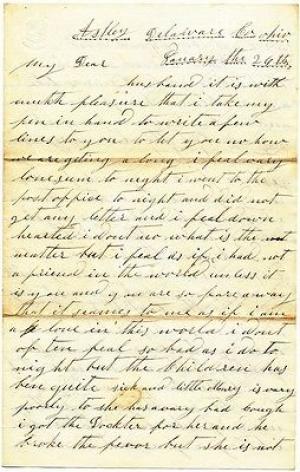 Astley Delaware Co ohio
My Dear
husband it is with
much pleasure that i take my
pen in hand to write a few
lines to you to let you no how
we are geting a long i feal vary
lonesum to night i went to the
post office to night and did not
get any letter and i feal down
hearted i dont no what is the
matter but i feal as if i had not
a friend in the world unless it
is you and you are so fare a way
that it seames to me as if i am
a lone in this world i dont
of ten feal so bad as i do to
night but the Children has
ben quite sick and little Mary is vary
poorly to she has a vary bad Cough
i got the Dockter for her and he
broke the fevor but she is not